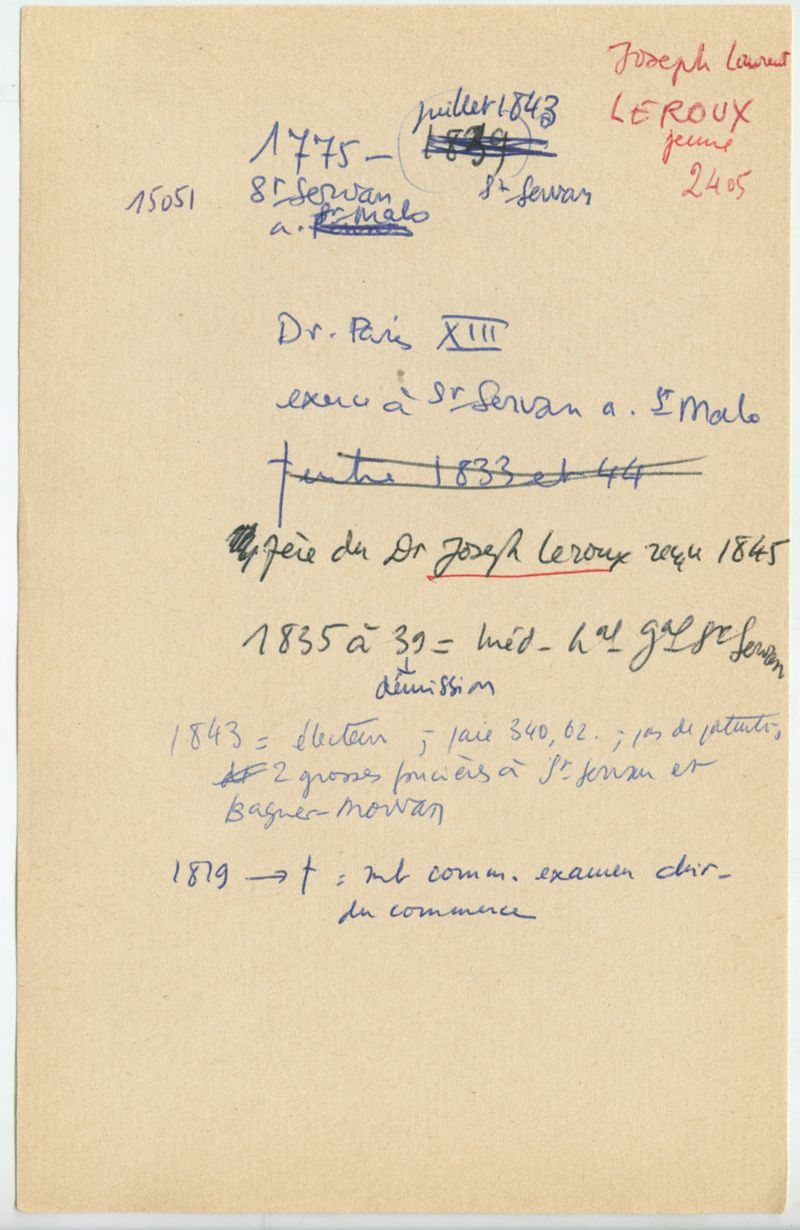 Joseph Laurent
LEROUX
jeune
2405
juillet 1843
1775 – 1839
15051 St Servan St Servan
a. St Malo
Dr. Paris XIII
exerce à St Servan a. St Malo
† entre 1833 et 44
père du Dr Joseph Leroux reçu 1845
1835 à 39 = méd – hal gal St Servan
démission
1843 = électeur ; paie 340,02. ; pas de patente,
2 grosses foncières à St Servan et
Baguer-Morvan
1819 → † = mb comm. examen chir–
du commerce